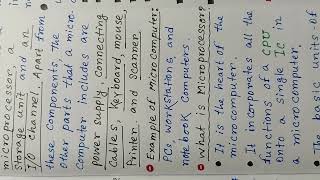 microprocessor, a
storage unit and an
I/O channel. Apart from
these components, the
other parts that a micro
computer includes are
power supply connecting
Cables, Keyboard, mouse,
Printer and Scanner.
Example of Microcomputer:
PC, workstations, and
note book computers.
What is Microprocessor?
It is the heart of the
microcomputer.
It incorporates all the
functions of a CPU
onto a single IC in
a micro computer.
The basic units of